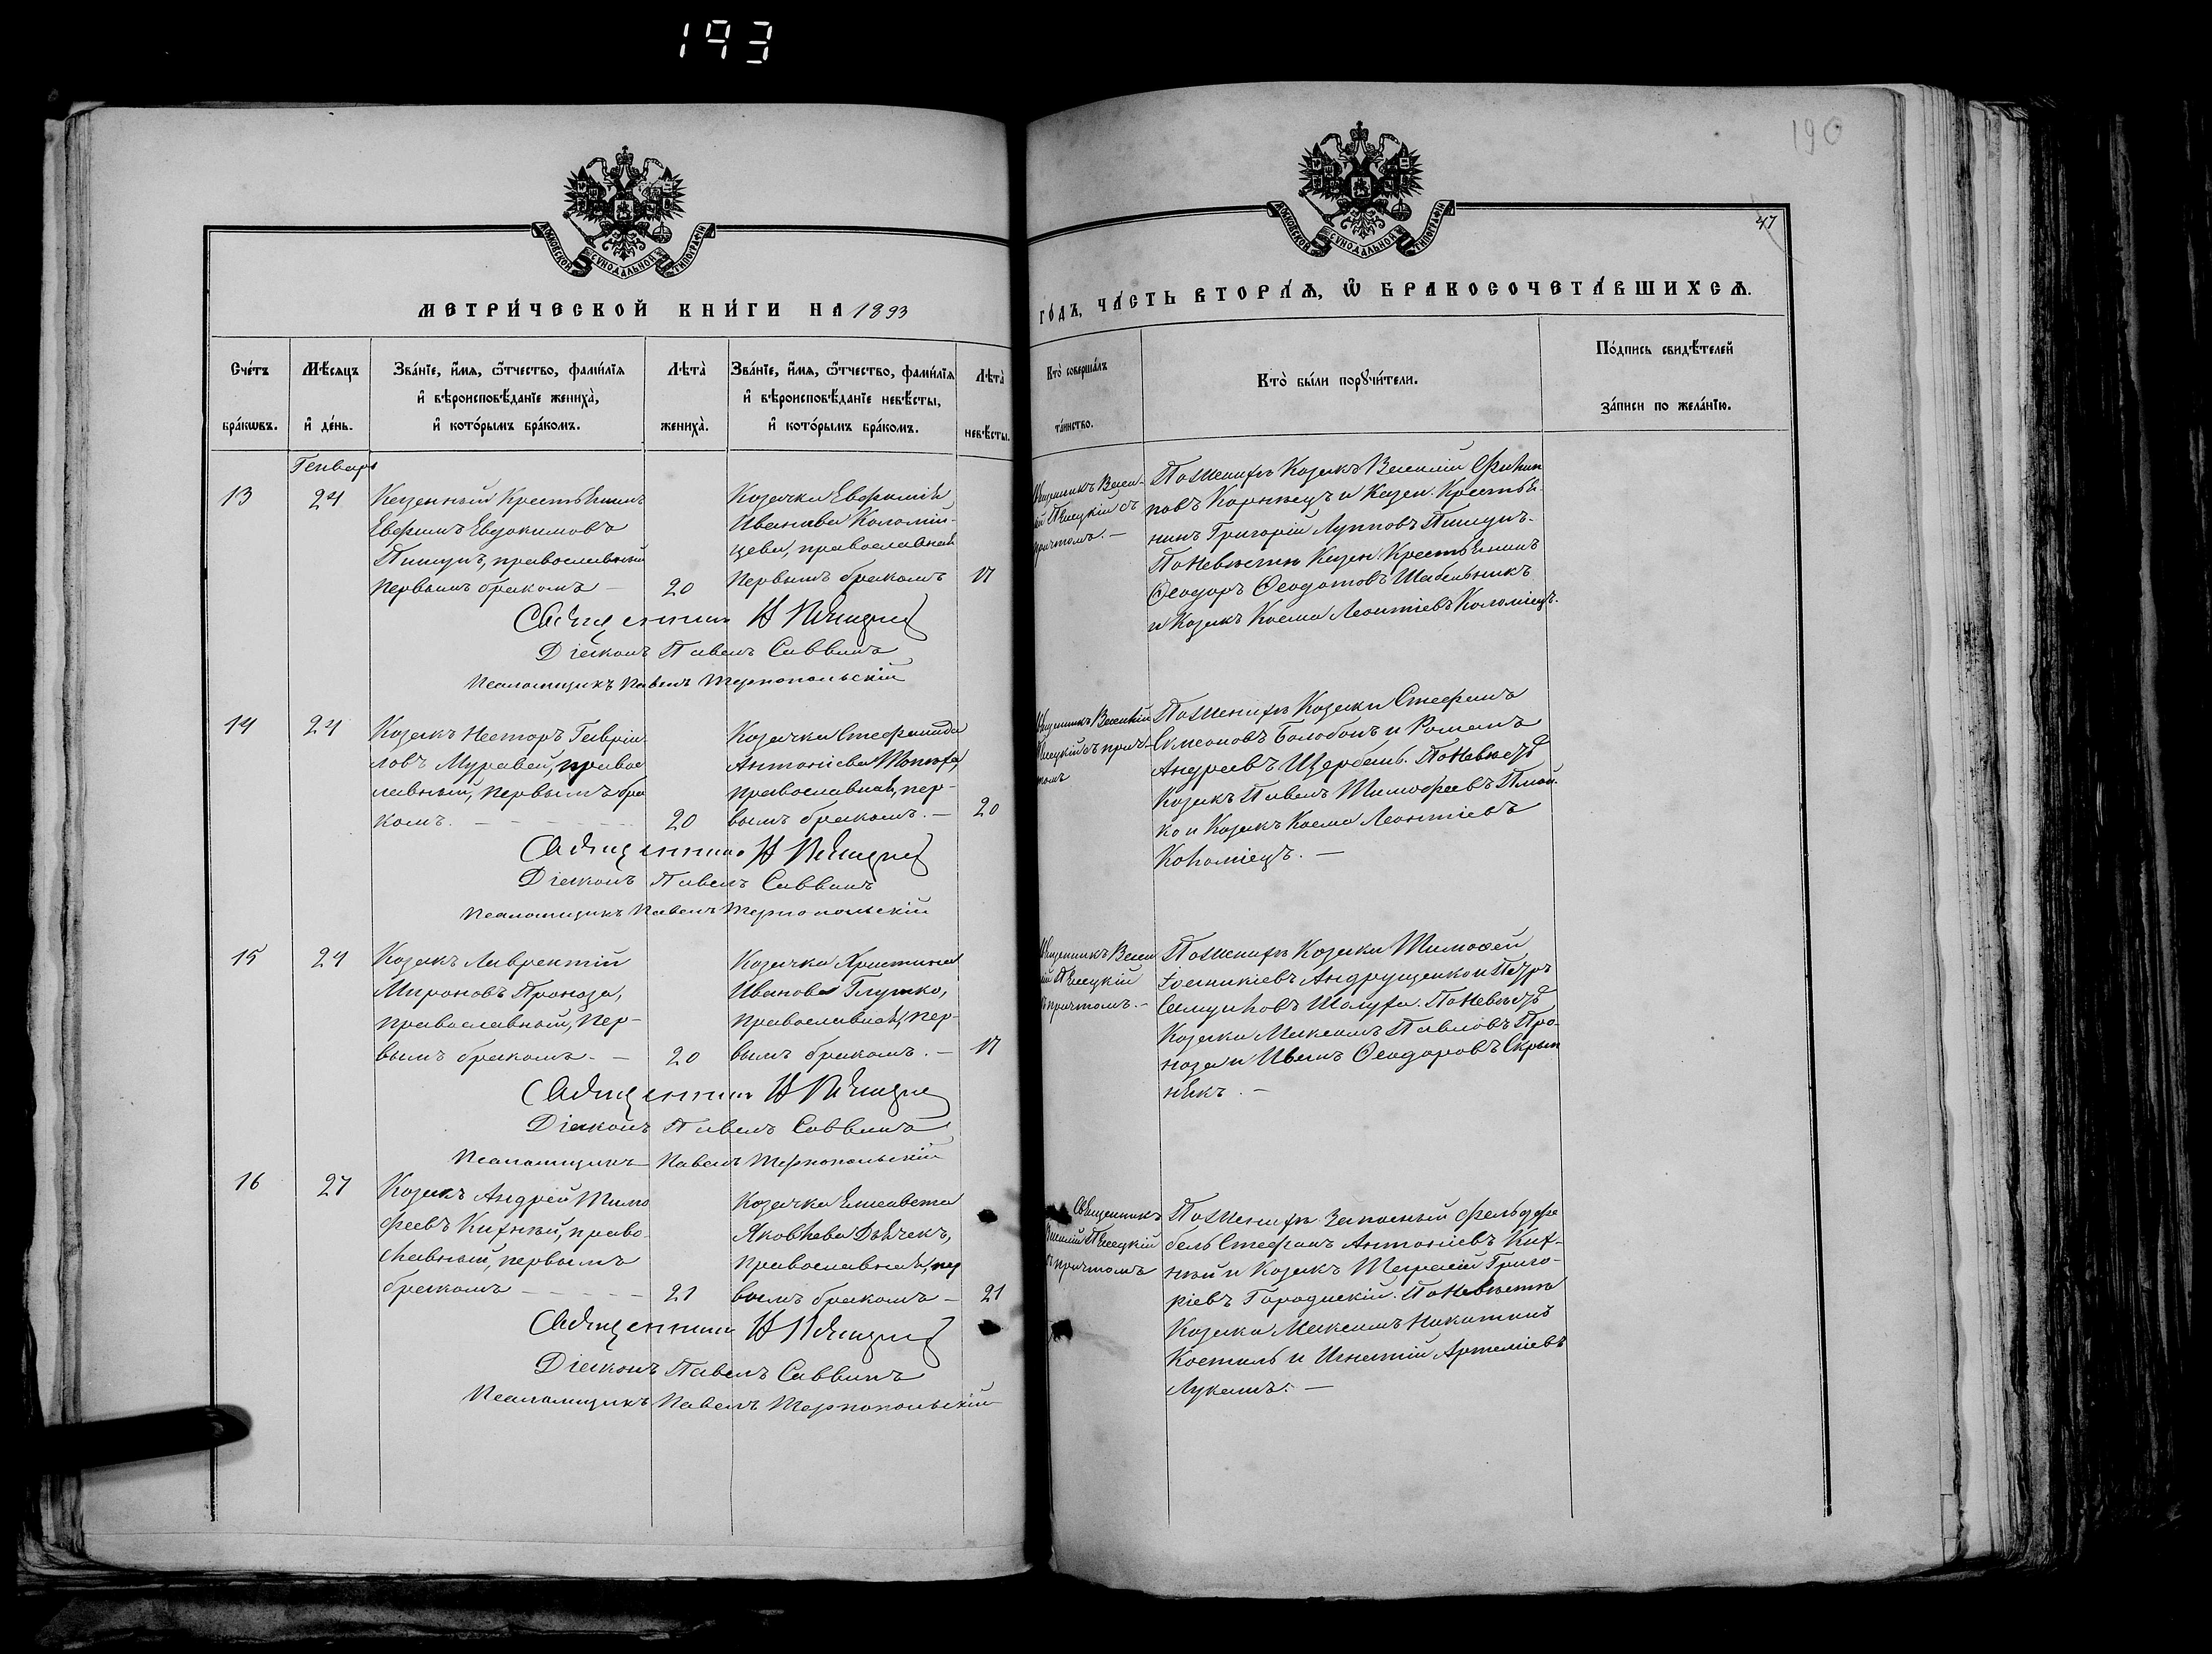 193
190
47
МОСКОВСКОЙ СѴНОДАЛЬНОЙ ТИПОГРАФІИ
МОСКОВСКОЙ СѴНОДАЛЬНОЙ ТИПОГРАФІИ
МЕТРИ́ЧЕСКОЙ КНИ́ГИ НА 1893
ГО́ДЪ, ЧА́СТЬ ВТОРА́Ѧ, Ѡ БРАКОСОЧЕТА́ВШИХСѦ.
Сче́тъ бра́кѡвъ.
Мѣ́сяцъ и҆ де́нь.
Зва́нїе, и҆́мя, ѻ҆́тчество, фами́лїя
и҆ вѣроисповѣ́данїе жениха̀,
и҆ кото́рымъ бра́комъ.
Лѣта̀ жениха̀.
Зва́нїе, и҆́мя, ѻ҆́тчество, фами́лїя
и҆ вѣроисповѣ́данїе невѣ́сты,
и҆ кото́рымъ бра́комъ.
Лѣта̀ невѣ́сты.
Кто̀ соверша́лъ та́инство.
Кто̀ бы́ли порꙋчи́тели.
По́дпись свидѣ́телей
за́писи по жела́нїю.
Генварь
13
24
Казенный Крестьянинъ
Евфимъ Евдокимовъ
Пищунъ, православный
первымъ бракомъ —
20
Козачка Евфимія
Иванова Коломій-
цева, православная
первымъ бракомъ
17
Священникъ Васи-
съ
причтомъ. —
По Женихѣ Козакъ Василій Филип
повъ Корнѣецъ и Казен. Крестья-
нинъ Григорій Лупповъ Пищунъ.
По Невѣстѣ Казен. Крестьянинъ
Ѳеодоръ Ѳеодотовъ Шабельникъ
и Козакъ Косма Леонтіевъ Коломіецъ.
Священникъ
Діаконъ Павелъ Саввинъ
Псаломщикъ Павелъ Тернопольскій
14
24
Козакъ Несторъ Гавріи
ловъ Муравей, правос
лавный, первымъ бра
комъ. —
20
Козачка Стефанида
Антоніева
православная, пер-
вымъ бракомъ. —
20
Священникъ Василій
съ прич-
томъ
По Женихѣ Козаки Стефанъ
Симеоновъ Болобонъ и Романъ
Андреевъ Щербань. По Невѣстѣ
Козакъ Павелъ Тимофеевъ
ко и Козакъ Косма Леонтіевъ
Коломіецъ. —
Священникъ
Діаконъ Павелъ Саввинъ
Псаломщикъ Павелъ Тернопольскій
15
24
Козакъ Лаврентій
Мироновъ Проноза,
православный, пер-
вымъ бракомъ. —
20
Козачка Христина
Иванова Глушко,
православная, пер-
вымъ бракомъ. —
17
Священникъ Васи
съ причтомъ. —
По Женихѣ Козаки Тимофей
Іоанникіевъ Андрущенко и Петръ
Самуиловъ По Невѣстѣ
Козаки Максимъ Павловъ Про-
ноза и Иванъ Ѳеодоровъ Скрып
никъ. —
Священникъ
Діаконъ Павелъ Саввинъ
Псаломщикъ Павелъ Тернопольскій
16
27
Козакъ Андрей Тимо
феевъ Кихный, право-
славный, первымъ
бракомъ —
21
Козачка Елисавета
Яковлева Дьячекъ,
православная, пер
вымъ бракомъ —
21
Священникъ
Василій
съ причтомъ
По Женихѣ Запасный фельдфе
бель Стефанъ Антоніевъ Ких-
ный и Козакъ Герасій Григо-
ріевъ Городискій. По Невѣстѣ
Козаки Максимъ Никитинъ
Костиль и Игнатій Артеміевъ
Лукашъ. —
Священникъ
Діаконъ Павелъ Саввинъ
Псаломщикъ Павелъ Тернопольскій